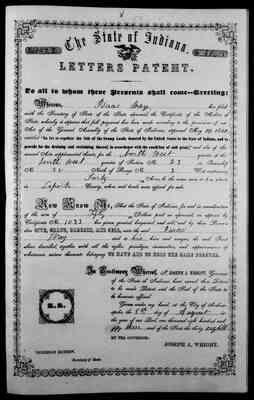 The State of Indiana.
LETTERS PATENT.
To all to whom these Presents shall come—Greeting:
Whereas, Isaac Hay has filed
with the Secretary of State of the State aforesaid, the Certificate of the
State, whereby it appears that full payment has been made according to the provisions of
Acts of the General Assembly of the State of Indiana, approved May 29, 1852,
entitled "An Act to regulate the Sale of the Swamp Lands donated by the United States to the State of Indiana, and to
provide for the draining and reclaiming thereof in accordance with the condition of said grant," and also of the
several Acts supplemental thereto for the North West quarter of
South West quarter of Section No. 23 in Township
No. of Range No. West containing
Forty Acres,
in Laporte County, where said lands were offered for sale.
Now Know Ye, That the State of Indiana, for and in consideration
of the sum of Fifty Dollars paid as aforesaid, as appears by
Certificate No. 1033 has given, granted, bargained and sold, and by these Presents
does GIVE, GRANT, BARGAIN, AND SELL, unto the said Isaac
Hay
and to heirs, have and assigns, the said Tract
above described, together with all the rights, privileges, immunities, and appurtenances of
whatsoever nature thereunto belonging TO HAVE AND TO HOLD THE SAME FOREVER.
In Testimony Whereof, I, JOSEPH A. WRIGHT, Governor
of the State of Indiana, have caused these Letters
to be made Patent, and the Seal of the State to
be hereunto affixed.
Given under my hand, at the City of Indian-
apolis, the 8th day of August in
the year of our Lord, one thousand eight hundred and
fifty and of the State
BY THE GOVERNOR:
JOSEPH A. WRIGHT.
Secretary of State.